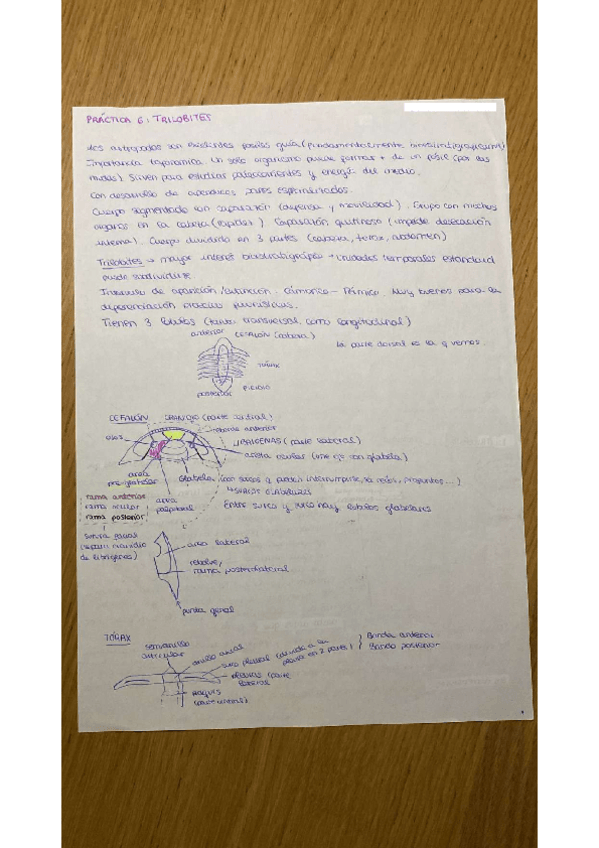 PRÁCTICA 6: TRILOBITES
Los artrópodos son excelentes fósiles guía (fundamentalmente bioestratigráficos)
Importancia taxonómica. Un solo organismo puede formar + de un fósil (por las
mudas). Sirven para estudiar paleoambientes y energía del medio.
Con desarrollo de apéndices pares especializados.
Cuerpo segmentado con caparazón (defensa y movilidad). Grupo con muchos
órganos en la cabeza (rápidos). Caparazón quitinoso (impide desecación
interna). Cuerpo dividido en 3 partes (cabeza, tórax, abdomen)
Trilobites → mayor interés bioestratigráfico + unidades temporales estandard
puede subdividirse
Intervalo de aparición/extinción: Cámbrico - Pérmico. Muy buenos para la
diferenciación
Tienen 3 lóbulos (tanto transversal, como longitudinal)
anterior CEFALÓN (cabeza)
la parte dorsal es la q vemos.
TÓRAX
posterior PIGIDIO
CEFALÓN CRANIDIO (parte central)
reborde anterior
ojos
LIBRIGENAS (parte lateral)
aresta ocular (une ojo con glabela)
area
preglabelar
Glabela (con surcos q pueden interrumpirse,
↳ SURCOS GLABELARES
rama anterior
rama ocular
rama posterior
area
palpebral
Entre surco y surco hay lóbulos glabelares
Sutura facial
(separa cranidio
de librígenas)
area lateral
reborde,
rama posterolateral
punta genal
TÓRAX
semianillo
articular
anillo axial
surco pleural (divide a la
pleura en 2 partes)
Banda anterior
Banda posterior
pleuras (parte
lateral)
raquis
(parte central)